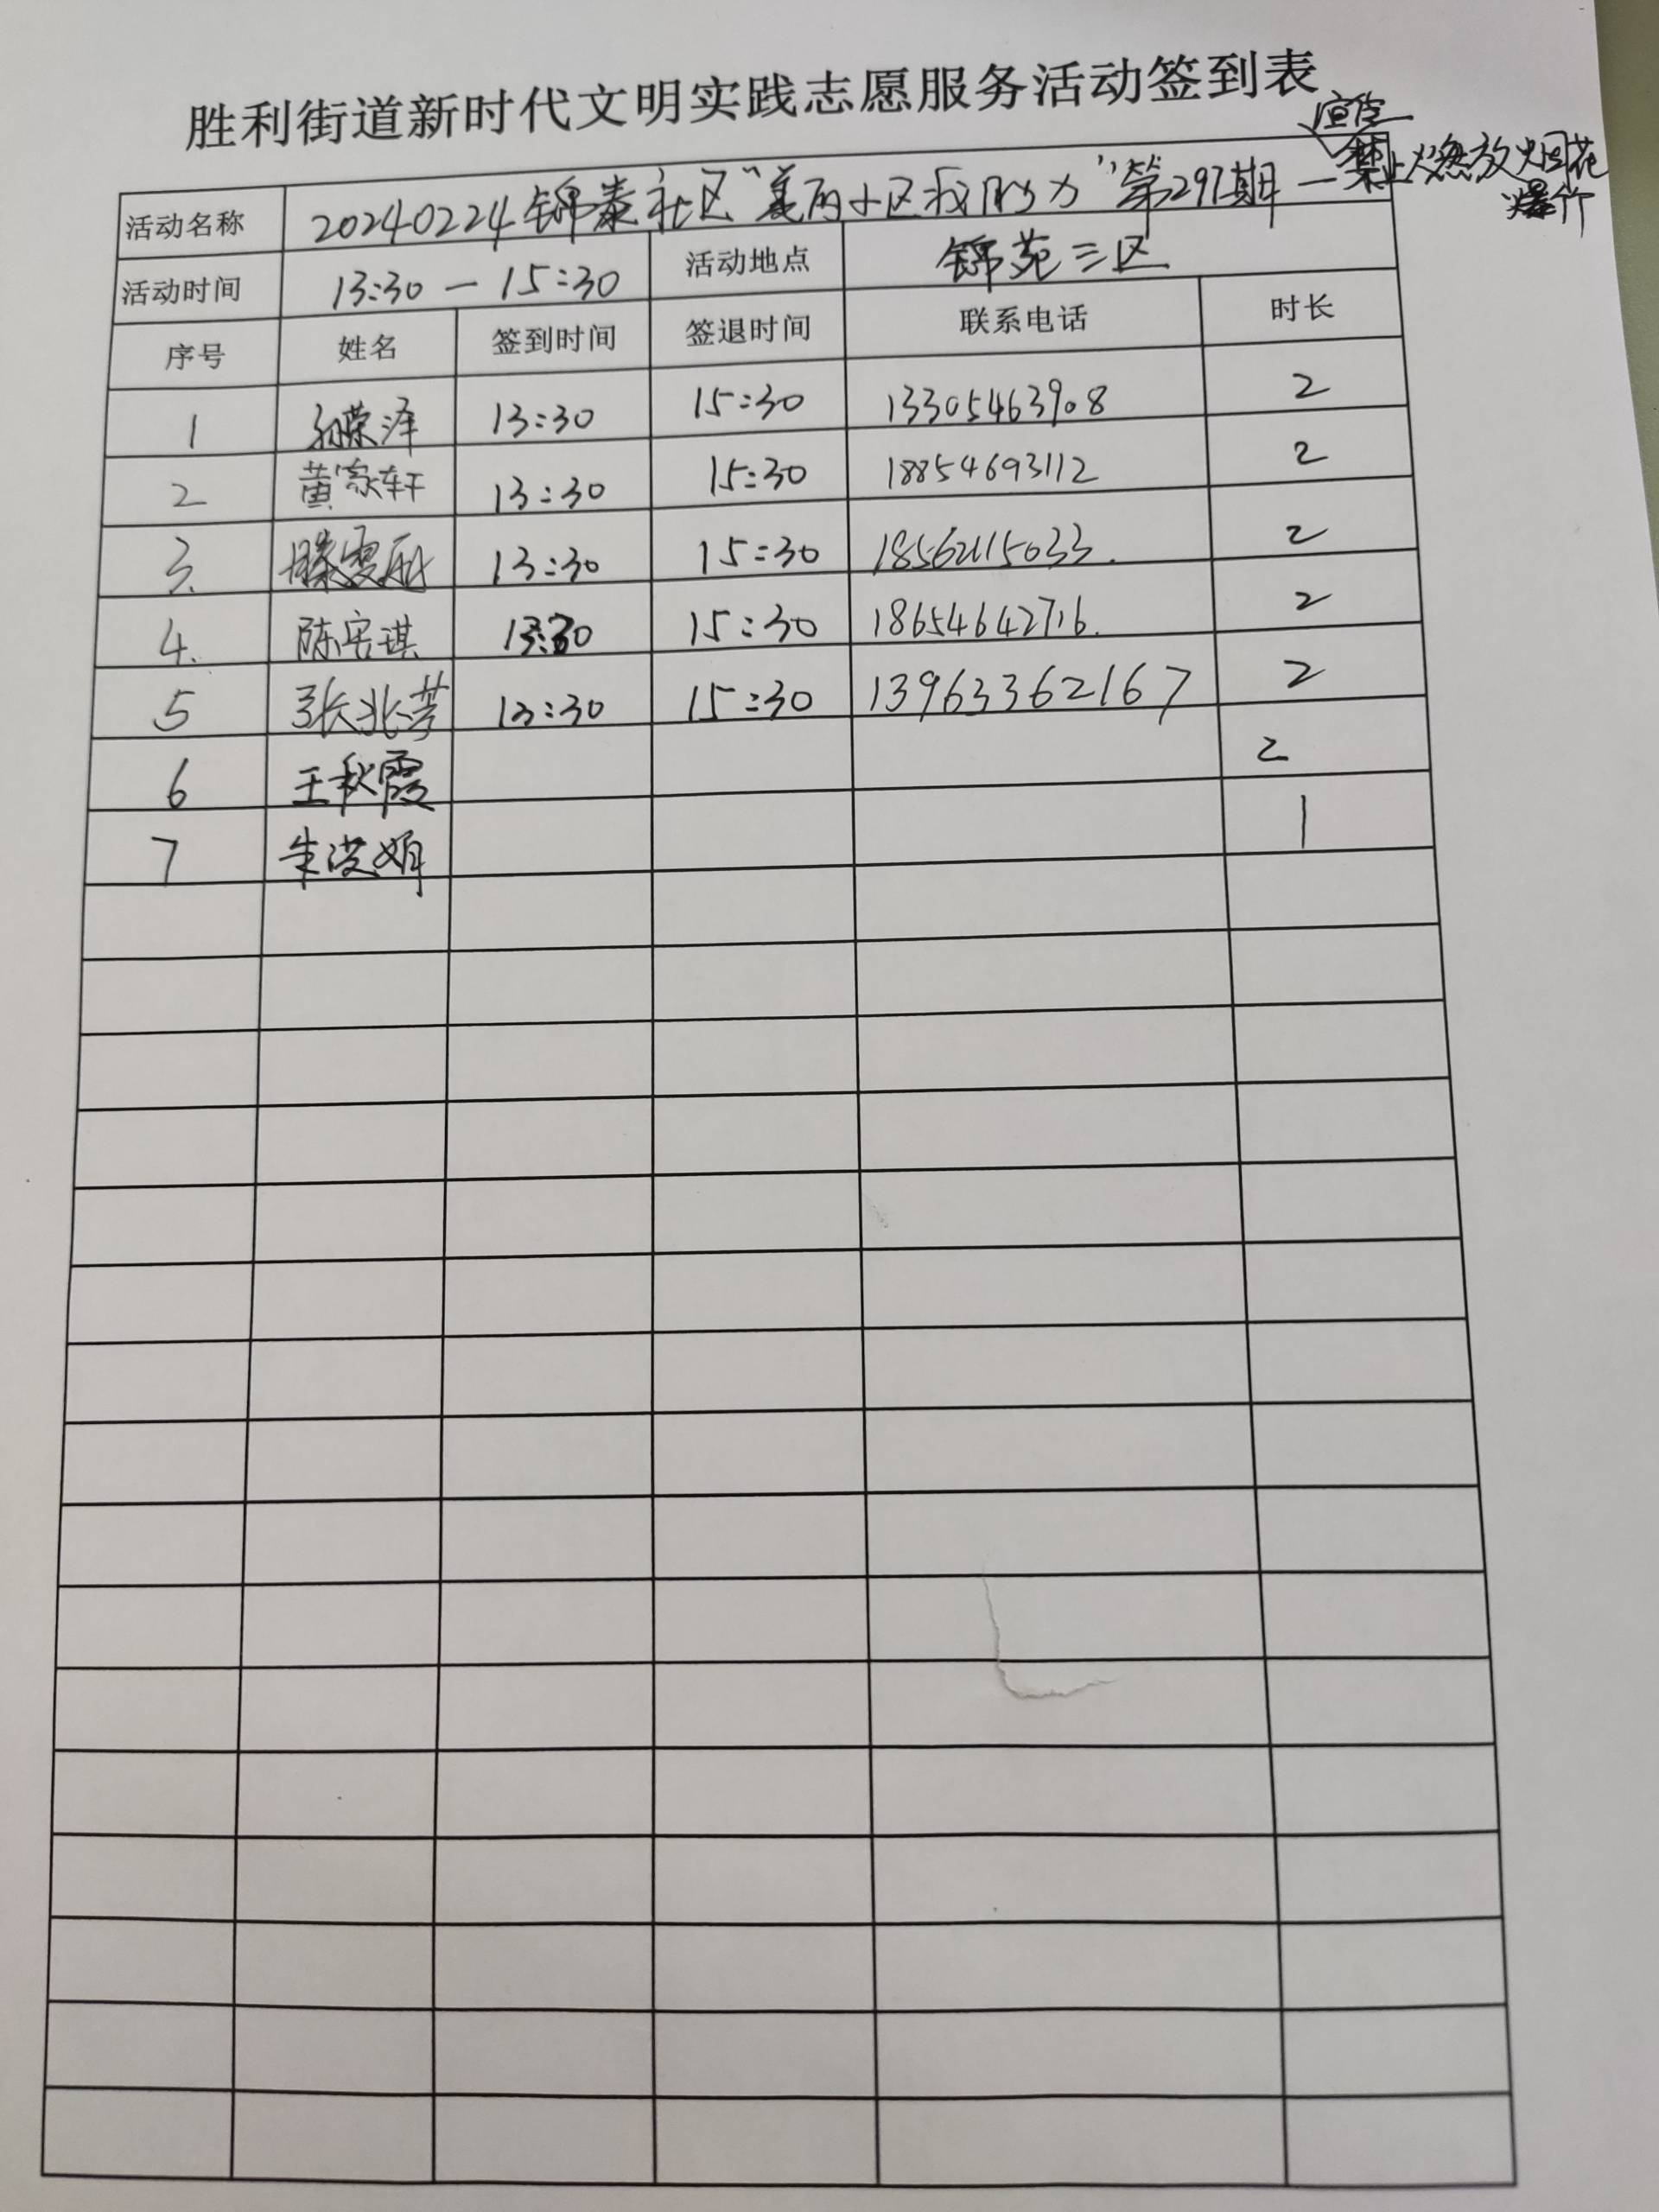 胜利街道新时代文明实践志愿服务活动签到表
活动名称 20240224锦泰社区“美丽小区我助力”第297期—宣传禁止燃放烟花爆竹
活动时间 13:30 — 15:30 活动地点 锦苑三区
序号 姓名 签到时间 签退时间 联系电话 时长
1 孙荣泽 13:30 15:30 13305463908 2
2 黄家轩 13:30 15:30 18854693112 2
3 滕雯 13:30 15:30 18562115033 2
4 陈宏琪 13:30 15:30 18654642716 2
5 张兆芳 13:30 15:30 13963362167 2
6 王秋霞 2
7 朱洪娟 1